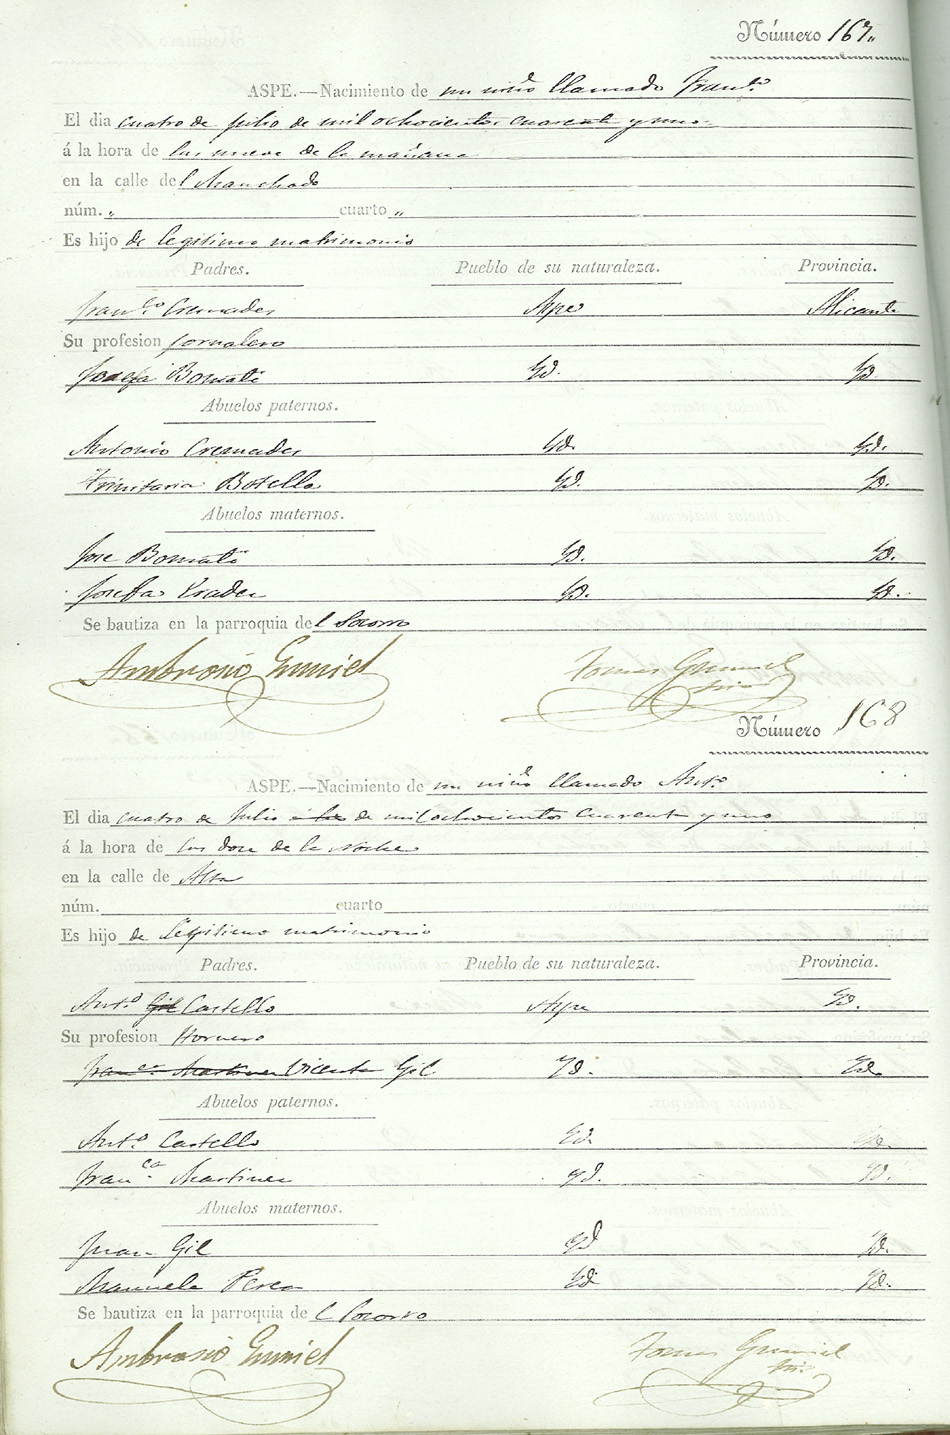 Número 167.
ASPE.—Nacimiento de un niño llamado Franco.
El dia cuatro de Julio de mil ochocientos cuarenta y uno.
á la hora de las nueve de la mañana
en la calle del Manchado
núm. „ cuarto „
Es hijo de legitimo matrimonio
Padres. Pueblo de su naturaleza. Provincia.
Franco. Cremades Aspe Alicante
Su profesion jornalero
Josefa Bomati Yd. Yd.
Abuelos paternos.
Antonio Cremades Yd. Yd.
Trinitaria Botella Yd. Yd.
Abuelos maternos.
Jose Bomati Yd. Yd.
Josefa Yd. Yd.
Se bautiza en la parroquia del Socorro
Ambrosio
Tomas
Número 168
ASPE.—Nacimiento de un niño llamado Anto.
El dia cuatro de Julio de mil ochocientos cuarenta y uno
á la hora de las doce de la noche
en la calle de
núm. cuarto
Es hijo de Legitimo matrimonio
Padres. Pueblo de su naturaleza. Provincia.
Anto. Gil Castello Aspe Yd.
Su profesion Hornero
Franca. Martinez Vicenta Gil Yd. Yd.
Abuelos paternos.
Anto. Castello Yd. Yd.
Franca. Martinez Yd. Yd.
Abuelos maternos.
Juan Gil Yd Yd.
Manuela Yd Yd.
Se bautiza en la parroquia del Socorro
Ambrosio
Tomas